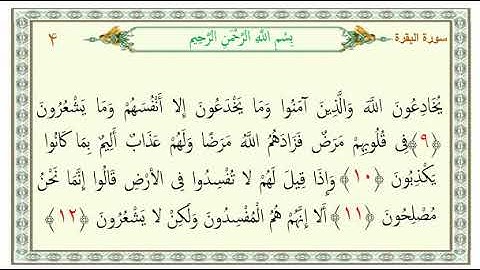 سورة البقرة بِسْمِ اللَّهِ الرَّحْمَنِ الرَّحِيمِ ۴
يُخَادِعُونَ اللَّهَ وَالَّذِينَ آمَنُوا وَمَا يَخْدَعُونَ إِلا أَنْفُسَهُمْ وَمَا يَشْعُرُونَ
﴿۹﴾ فِي قُلُوبِهِمْ مَرَضٌ فَزَادَهُمُ اللَّهُ مَرَضًا وَلَهُمْ عَذَابٌ أَلِيمٌ بِمَا كَانُوا
يَكْذِبُونَ ﴿۱۰﴾ وَإِذَا قِيلَ لَهُمْ لا تُفْسِدُوا فِي الأرْضِ قَالُوا إِنَّمَا نَحْنُ
مُصْلِحُونَ ﴿۱۱﴾ أَلا إِنَّهُمْ هُمُ الْمُفْسِدُونَ وَلَكِنْ لا يَشْعُرُونَ ﴿۱۲﴾